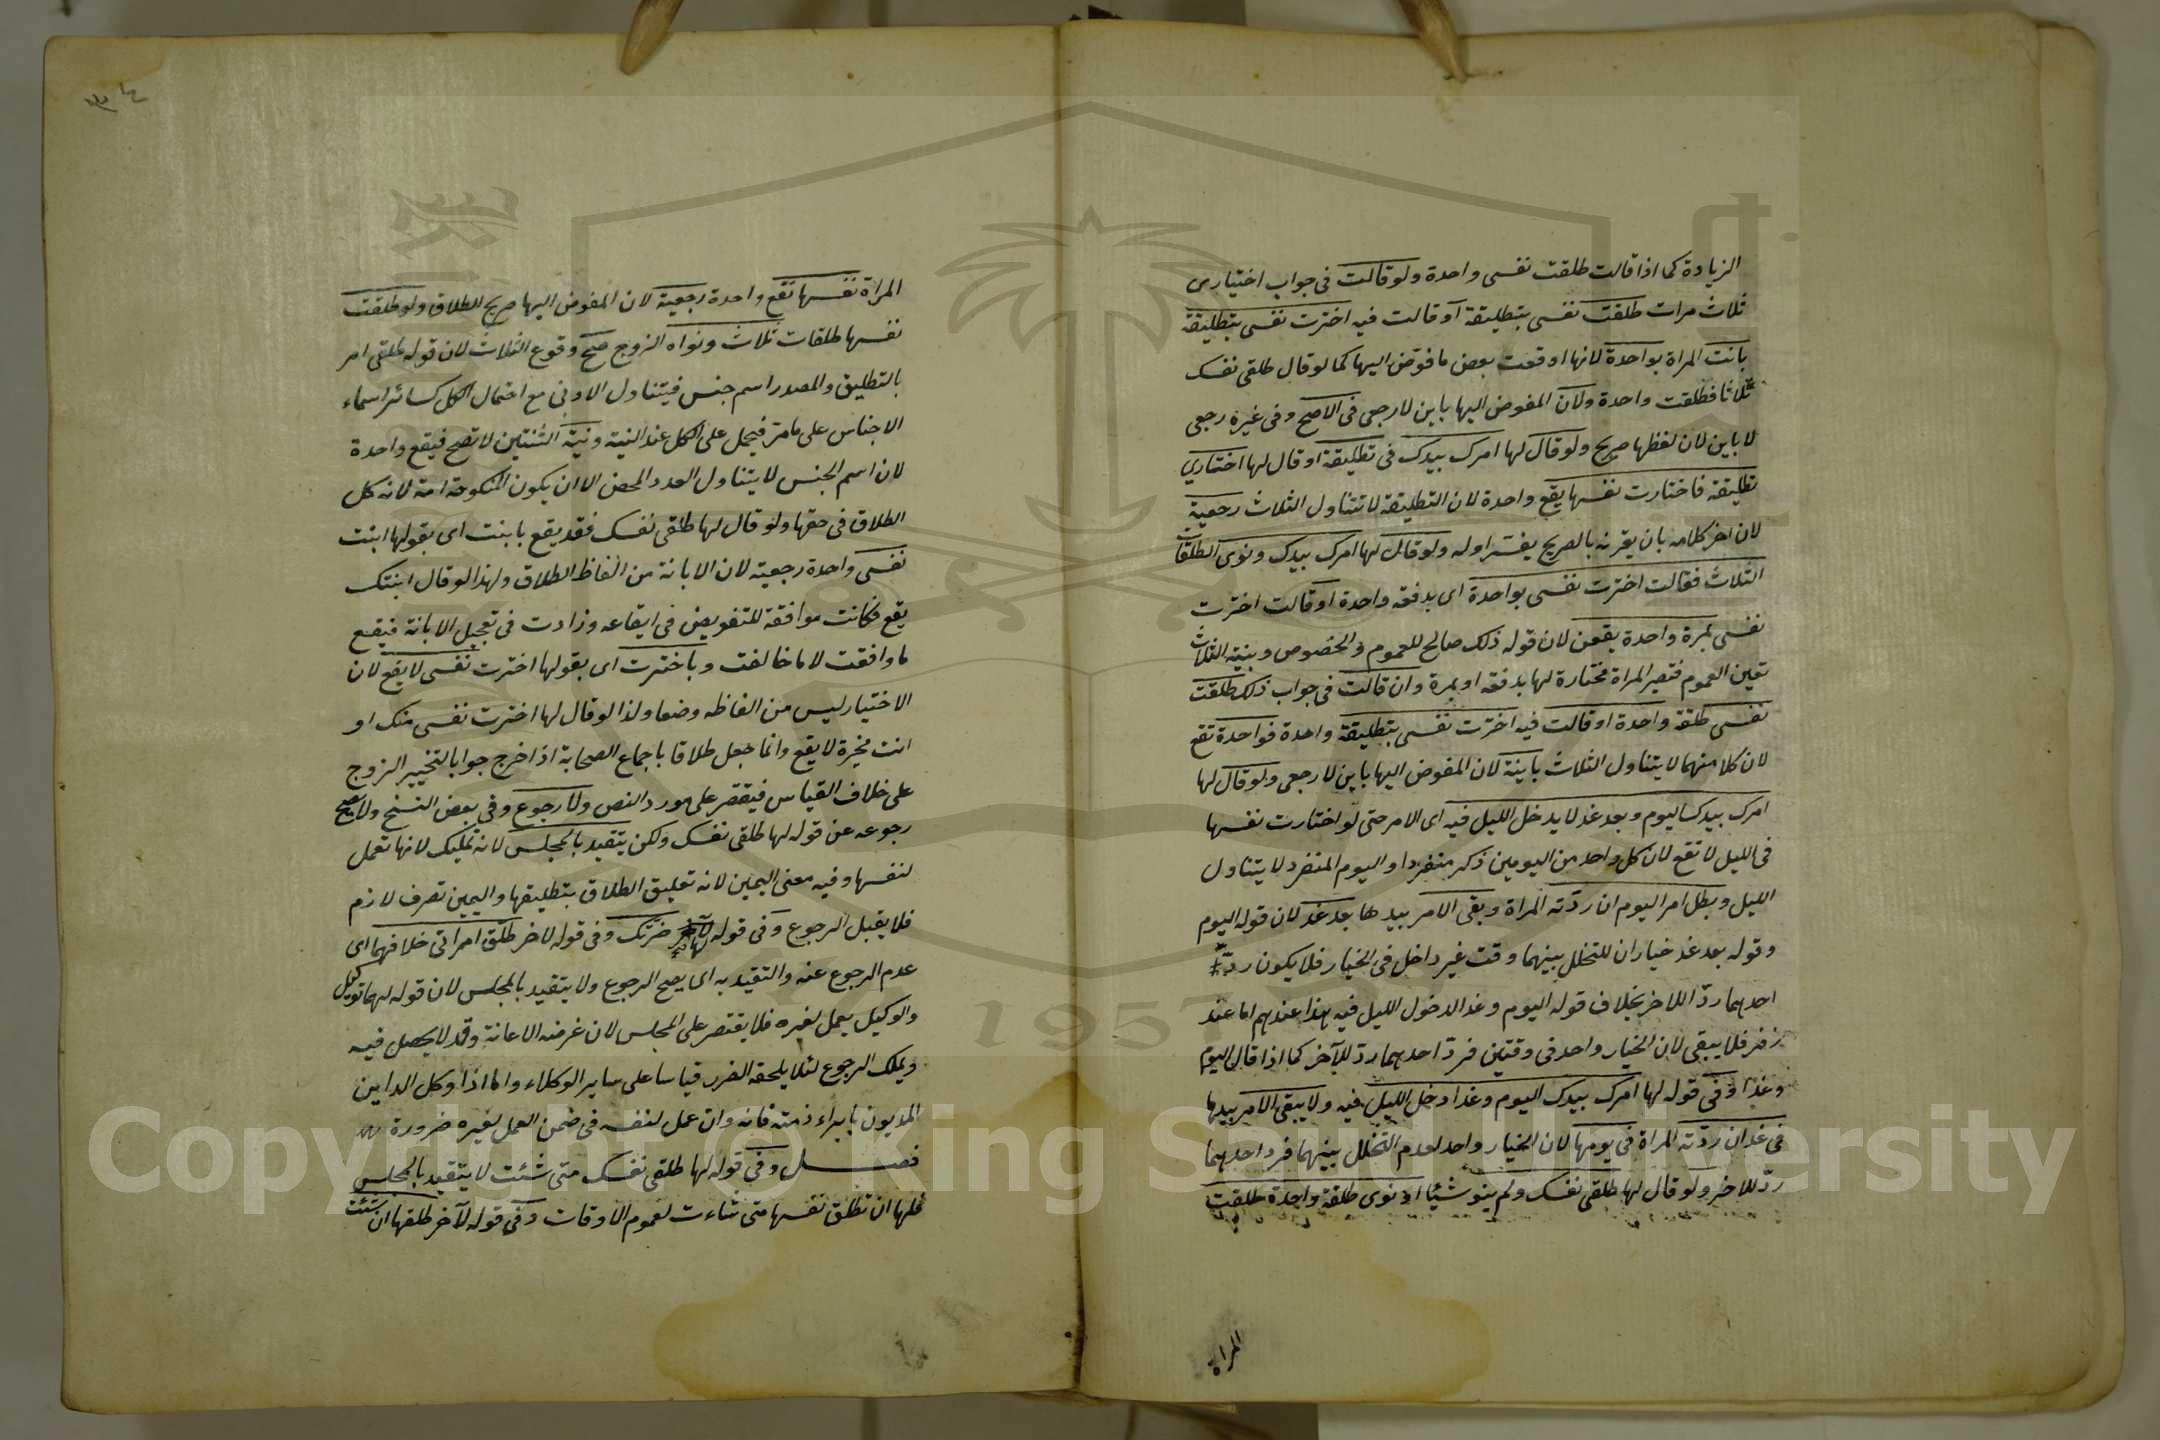 الزيادة كما اذا قالت طلقت نفسى واحدة ولو قالت فى جواب اختيارى
ثلاث مرات طلقت نفسى بتطليقة او قالت فيه اخترت نفسى بتطليقة
بانت المراة بواحدة لانها اوقعت بعض ما فوض اليها كما لو قال طلقى نفسك
ثلاثا فطلقت واحدة ولان المفوض اليها باين لا رجعى فى الاصح وفى غيره رجعى
لا باين لان لفظها صريح ولو قال لها امرك بيدك فى تطليقة او قال لها اختاري
تطليقة فاختارت نفسها يقع واحدة لان التطليقة لا تتناول الثلاث رجعية
لان اخر كلامه بان يقرنه بالصريح يفسر اوله ولو قال لها امرك بيدك ونوى الطلقات
الثلاث فقالت اخترت نفسى بواحدة اى بدفقه واحدة او قالت اخترت
نفسى بمرة واحدة يقعن لان قوله ذلك صالح للعموم والخصوص وبنية الثلاث
تعين العموم فتصير المراة مختارة لها بدفقه او بمرة وان قالت فى جواب ذلك طلقت
نفسى طلقة واحدة او قالت فيه اخترت نفسى بتطليقة واحدة فواحدة تقع
لان كلا منهما لا يتناول الثلاث باينة لان المفوض اليها باين لا رجعى ولو قال لها
امرك بيدك اليوم وبعد غد لا يدخل الليل فيه اى الامر حتى لو اختارت نفسها
فى الليل لا تقع لان كل واحد من اليومين ذكر منفردا واليوم المنفرد لا يتناول
الليل وبطل امر اليوم ان ردته المراة وبقى الامر بيدها بعد غد لان قوله اليوم
وقوله بعد غد خياران للتخلل بينهما وقت غير داخل فى الخيار فلا يكون رد
احدهما رد اللاخر بخلاف قوله اليوم وغدا لدخول الليل فيه هذا عندهم اما عند
زفر فلا يبقى لان الخيار واحد فى وقتين فرد احدهما رد للآخر كما اذا قال اليوم
وغدا وفى قوله لها امرك بيدك اليوم وغدا دخل الليل فيه ولا يبقى الامر بيدها
فى غد ان ردته المراة فى يومها لان الخيار واحد لعدم التخلل بينهما فرد احدهما
رد للاخر ولو قال لها طلقى نفسك ولم ينو شيئا او نوى طلقة واحدة طلقت
المراة
المراة نفسها تقع واحدة رجعية لان المفوض اليها صريح الطلاق ولو طلقت
نفسها طلقات ثلاث ونواه الزوج صح وقوع الثلاث لان قوله طلقى امر
بالتطليق والمصدر اسم جنس فيتناول الادنى مع احتمال الكل كسائر اسماء
الاجناس على ما مر فيحمل على الكل عند النية ونية الثنتين لا تصح فيقع واحدة
لان اسم الجنس لا يتناول العدد المحض الا ان يكون المنكوحة امة لانه كل
الطلاق فى حقها ولو قال لها طلقى نفسك فقد يقع بابنت اى بقولها ابنت
نفسى واحدة رجعية لان الابانة من الفاظ الطلاق ولهذا لو قال ابنتك
يقع فكانت موافقة للتفويض فى ايقاعه وزادت فى تعجيل الابانة فيقع
ما وافقت لا ما خالفت وباخترت اى بقولها اخترت نفسى لا يقع لان
الاختيار ليس من الفاظه وضعا ولذا لو قال لها اخترت نفسى منك او
انت مخيرة لا يقع وانما جعل طلاقا باجماع الصحابة اذا خرج جوابا لتخيير الزوج
على خلاف القياس فيقتصر على مورد النص ولا رجوع وفى بعض النسخ ولا يصح
رجوعه عن قوله لها طلقى نفسك ولكن يتقيد بالمجلس لانه تمليك لانها تعمل
لنفسها وفيه معنى اليمين لانه تعليق الطلاق بتطليقها واليمين تصرف لازم
فلا يقبل الرجوع وفى قوله ضرتك وفى قوله لاخر طلق امراتى خلافهما اى
عدم الرجوع عنه والتقيد به اى يصح الرجوع ولا يتقيد بالمجلس لان قوله لهما توكيل
والوكيل يعمل لغيره فلا يقتصر على المجلس لان غرضه الاعانة وقد لا يحصل فيه
ويملك الرجوع لئلا يلحقه الضرر قياسا على ساير الوكلاء واما اذا وكل الداين
المديون بابراء ذمته فانه وان عمل لنفسه فى ضمن العمل لغيره ضرورة
فصل وفى قوله لها طلقى نفسك متى شئت لا يتقيد بالمجلس
فلها ان تطلق نفسها متى شاءت لعموم الاوقات وفى قوله لآخر طلقها ان شئت
Copyright © King Saud University
1957